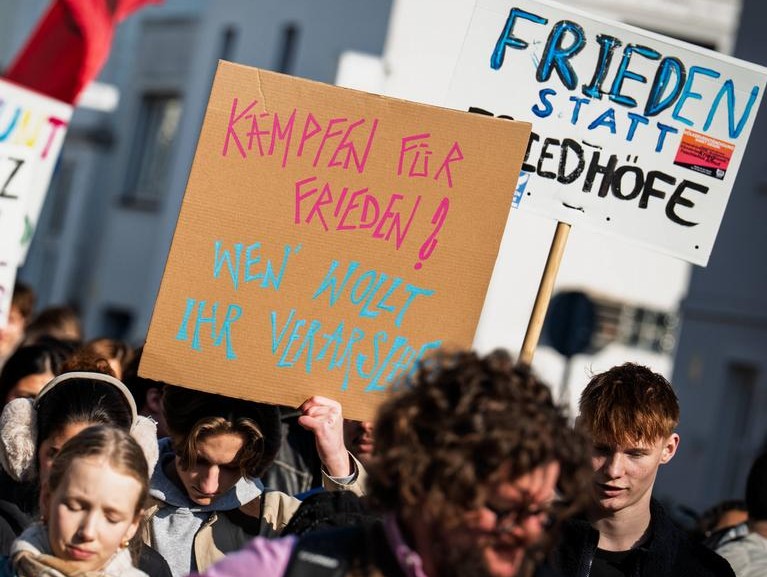 KÄMPFEN FÜR
FRIEDEN?
WEN' WOLLT
IHR VERARSCHE
FRIEDEN
STATT
FRIEDHÖFE